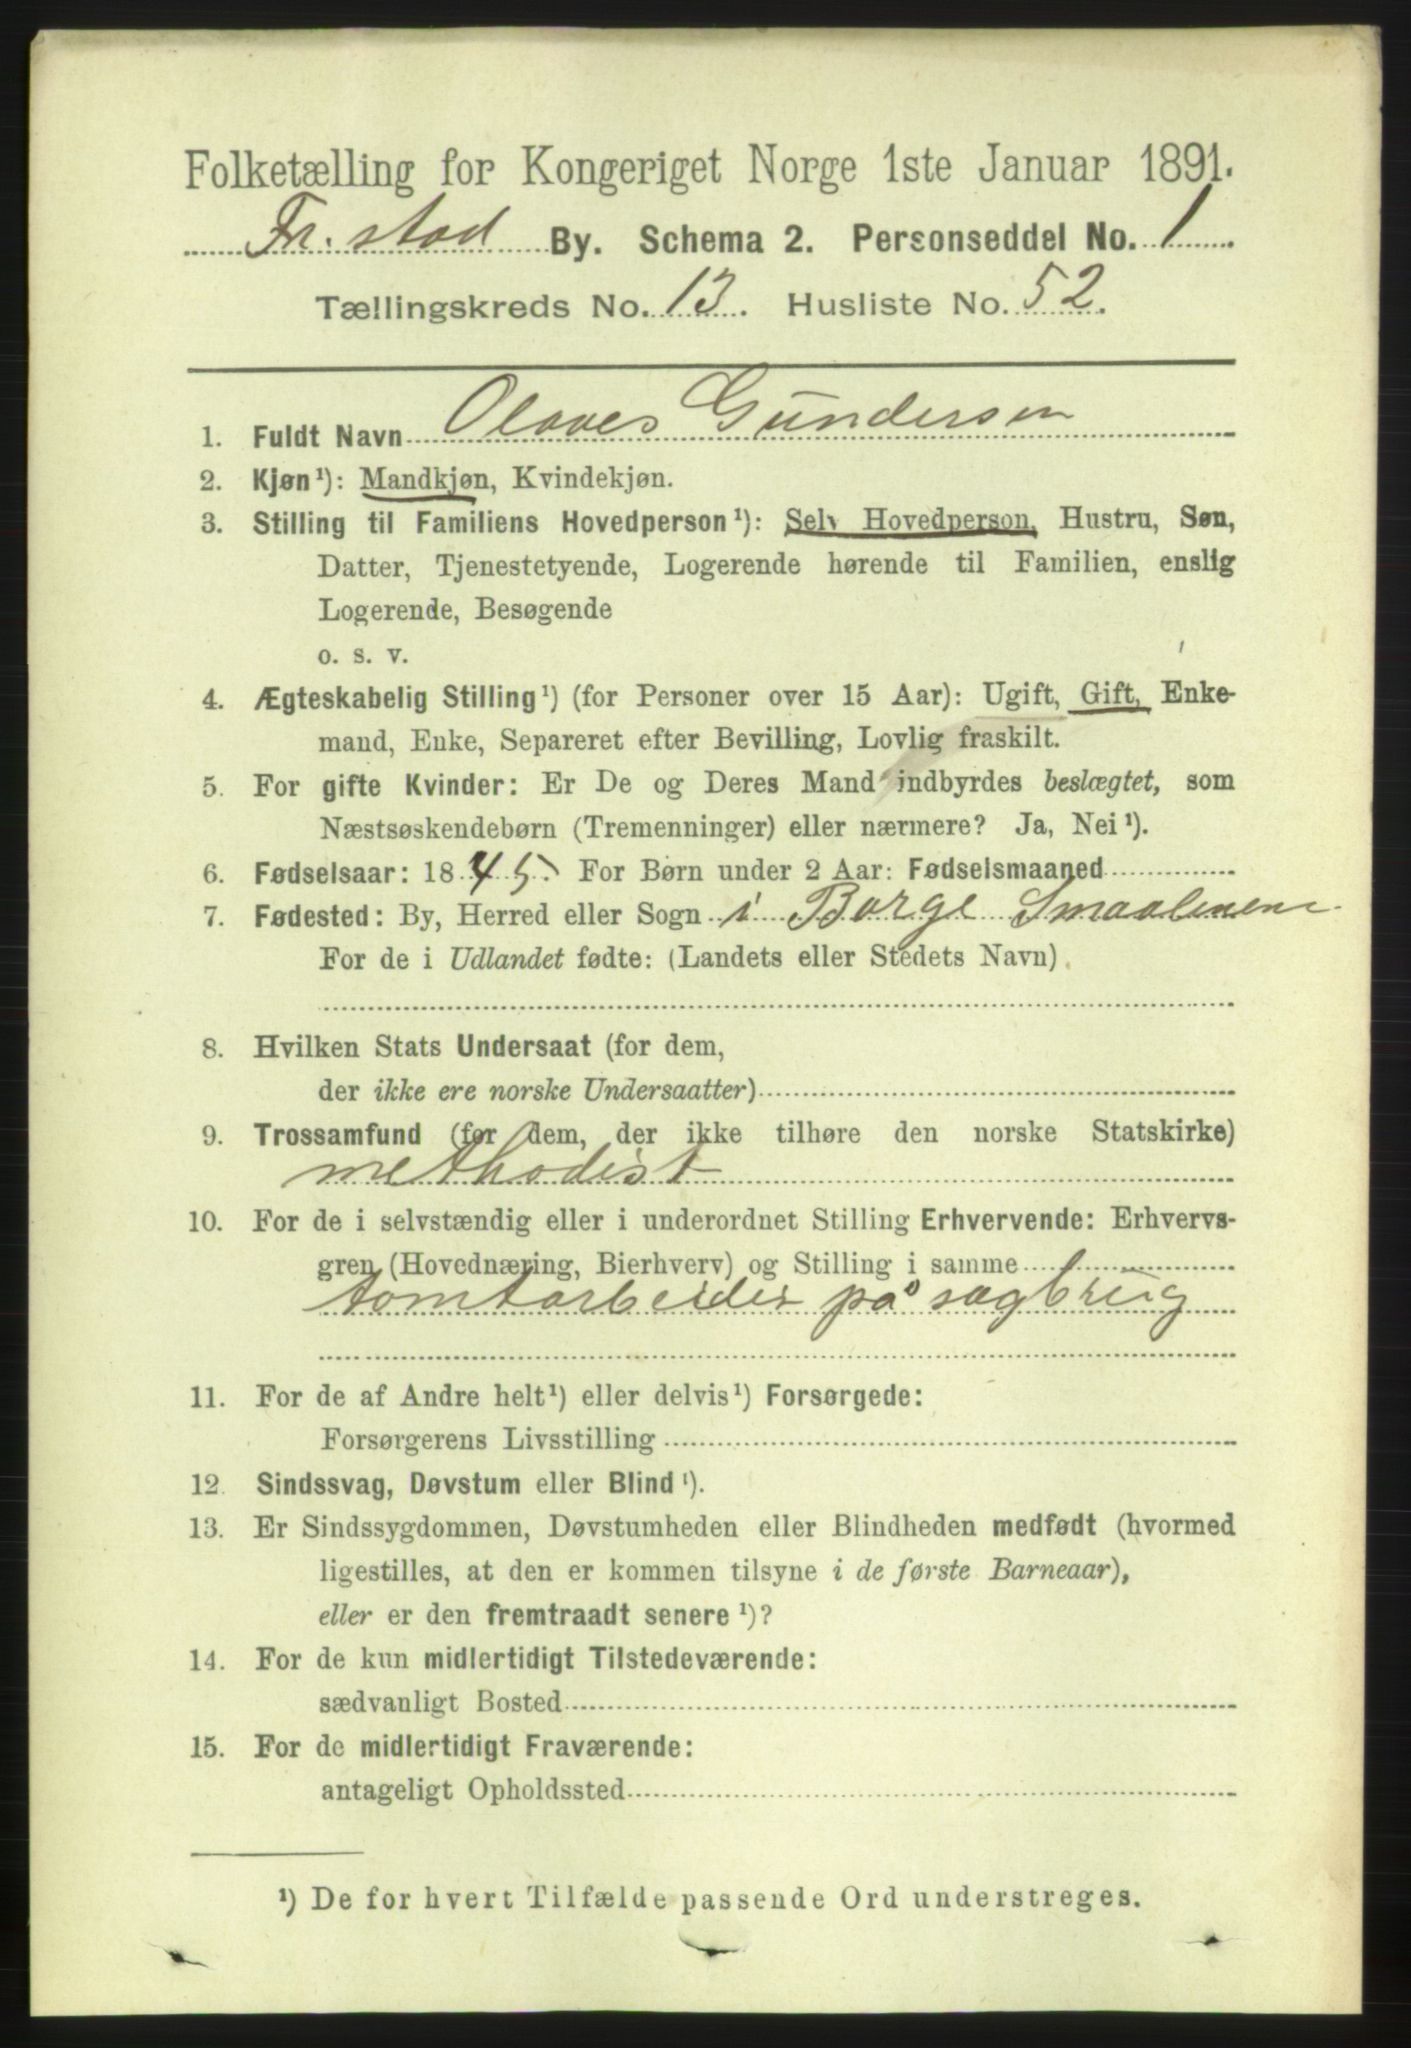 Folketælling for Kongeriget Norge 1ste Januar 1891.
Fr.stad By. Schema 2. Personseddel No. 1
Tællingskreds No. 13. Husliste No. 52.
1. Fuldt Navn Olaves Gundersen
2. Kjøn¹): Mandkjøn, Kvindekjøn.
3. Stilling til Familiens Hovedperson¹): Selv Hovedperson, Hustru, Søn,
Datter, Tjenestetyende, Logerende hørende til Familien, enslig
Logerende, Besøgende
o. s. v.
4. Ægteskabelig Stilling¹) (for Personer over 15 Aar): Ugift, Gift, Enke-
mand, Enke, Separeret efter Bevilling, Lovlig fraskilt.
5. For gifte Kvinder: Er De og Deres Mand indbyrdes beslægtet, som
Næstsøskendebørn (Tremenninger) eller nærmere? Ja, Nei¹).
6. Fødselsaar: 1845. For Børn under 2 Aar: Fødselsmaaned
7. Fødested: By, Herred eller Sogn i Borge Smaalenene
For de i Udlandet fødte: (Landets eller Stedets Navn)
8. Hvilken Stats Undersaat (for dem,
der ikke ere norske Undersaatter)
9. Trossamfund (for dem, der ikke tilhøre den norske Statskirke)
methodist
10. For de i selvstændig eller i underordnet Stilling Erhvervende: Erhvervs-
gren (Hovednæring, Bierhverv) og Stilling i samme
tomtarbeider på sagbrug
11. For de af Andre helt¹) eller delvis¹) Forsørgede:
Forsørgerens Livsstilling
12. Sindssvag, Døvstum eller Blind¹).
13. Er Sindssygdommen, Døvstumheden eller Blindheden medfødt (hvormed
ligestilles, at den er kommen tilsyne i de første Barneaar),
eller er den fremtraadt senere¹)?
14. For de kun midlertidigt Tilstedeværende:
sædvanligt Bosted
15. For de midlertidigt Fraværende:
antageligt Opholdssted
¹) De for hvert Tilfælde passende Ord understreges.